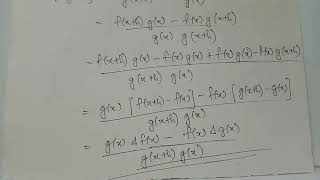 = f(x+h) g(x) - f(x) g(x+h) / g(x) g(x+h)
= f(x+h) g(x) - f(x) g(x) + f(x) g(x) - f(x) g(x+h) / g(x+h) g(x)
= g(x) [f(x+h) - f(x)] - f(x) [g(x+h) - g(x)] / g(x+h) g(x)
= g(x) Δ f(x) - f(x) Δ g(x) / g(x+h) g(x)